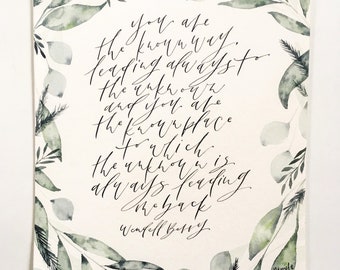 you are
the known way
leading always to
the unknown
and you are
the known place
to which
the unknown is
always leading
me back
Wendell Berry